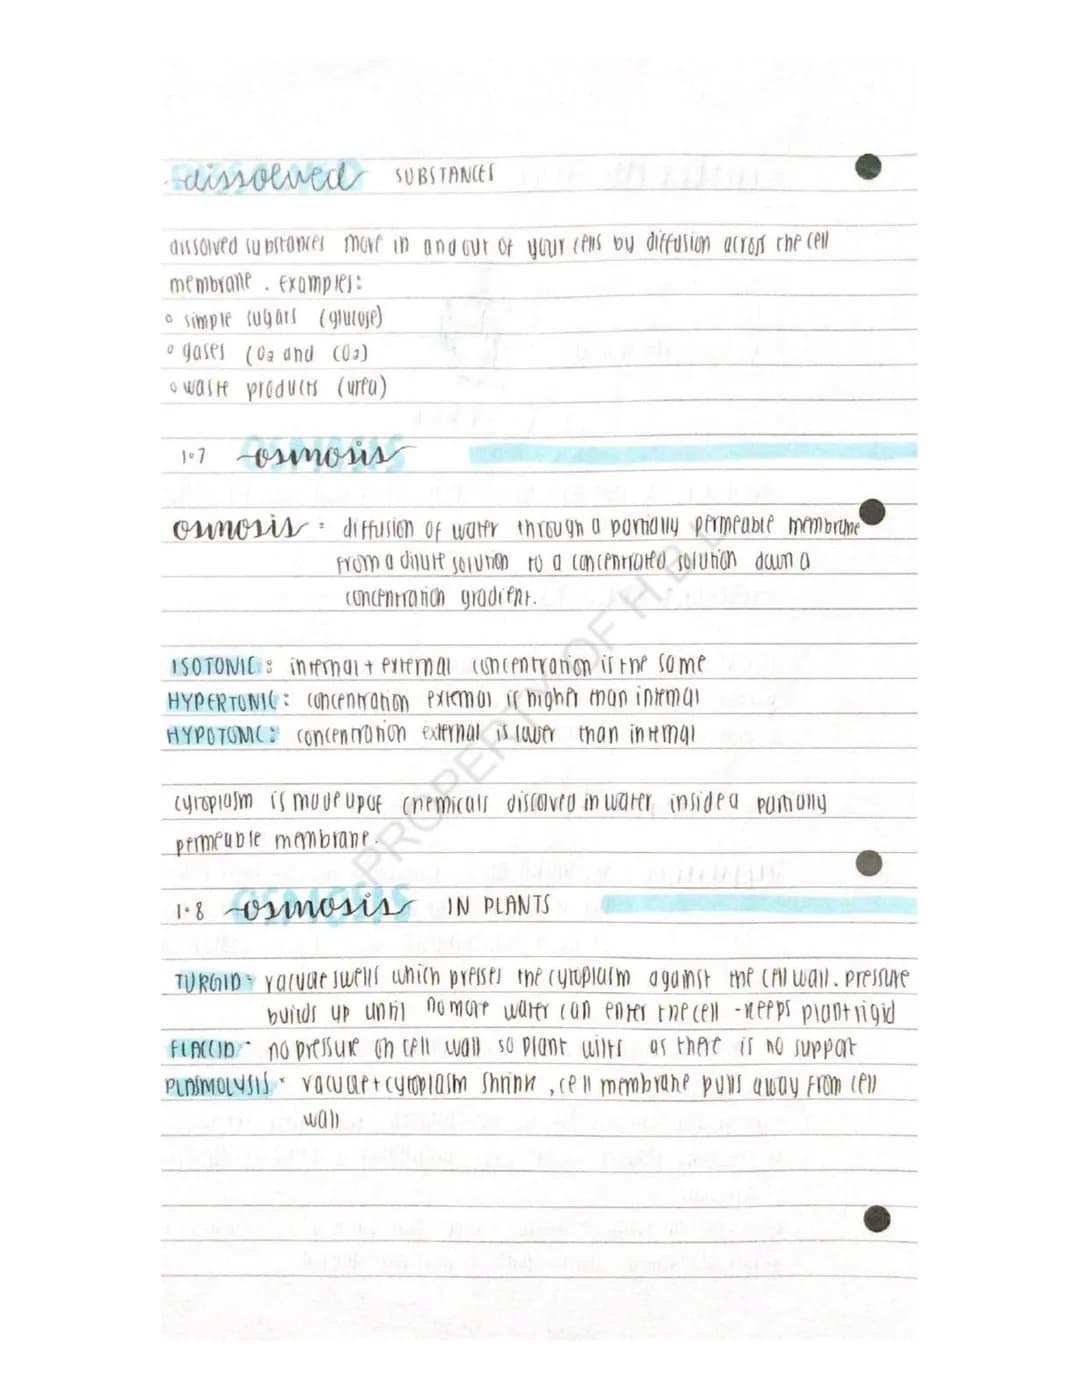 dissolved SUBSTANCES
dissolved substances move in and out of your cells by diffusion across the cell
membrane. Examples:
◦ simple sugars (glucose)
◦ gases (O₂ and CO₂)
◦ waste products (urea)
1.7 OSMOSIS osmosis
osmosis: diffusion of water through a partially permeable membrane
from a dilute solution to a concentrated solution down a
concentration gradient.
ISOTONIC: internal + external concentration is the same
HYPERTONIC: concentration external is higher than internal
HYPOTONIC: concentration external is lower than internal
cytoplasm is made up of chemicals dissolved in water inside a partially
permeable membrane.
PROPERTY OF H.B.L
1.8 OSMOSIS osmosis IN PLANTS
TURGID- vacuole swells which presses the cytoplasm against the cell wall. pressure
builds up until no more water can enter the cell - keeps plant rigid
FLACCID- no pressure on cell wall so plant wilts as there is no support
PLASMOLYSIS- vacuole + cytoplasm shrink, cell membrane pulls away from cell
wall